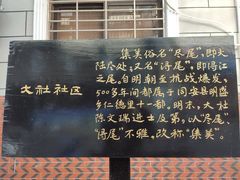 大社社区
集美俗名“尽尾”，即大
陆尽处，又名“浔尾”，即浔江
之尾。自明朝至抗战爆发，
500多年间都属于同安县明盛
乡仁德里十一都。明末，大社
陈文瑞进士及第，以“尽尾”、
“浔尾”不雅，改称“集美”。